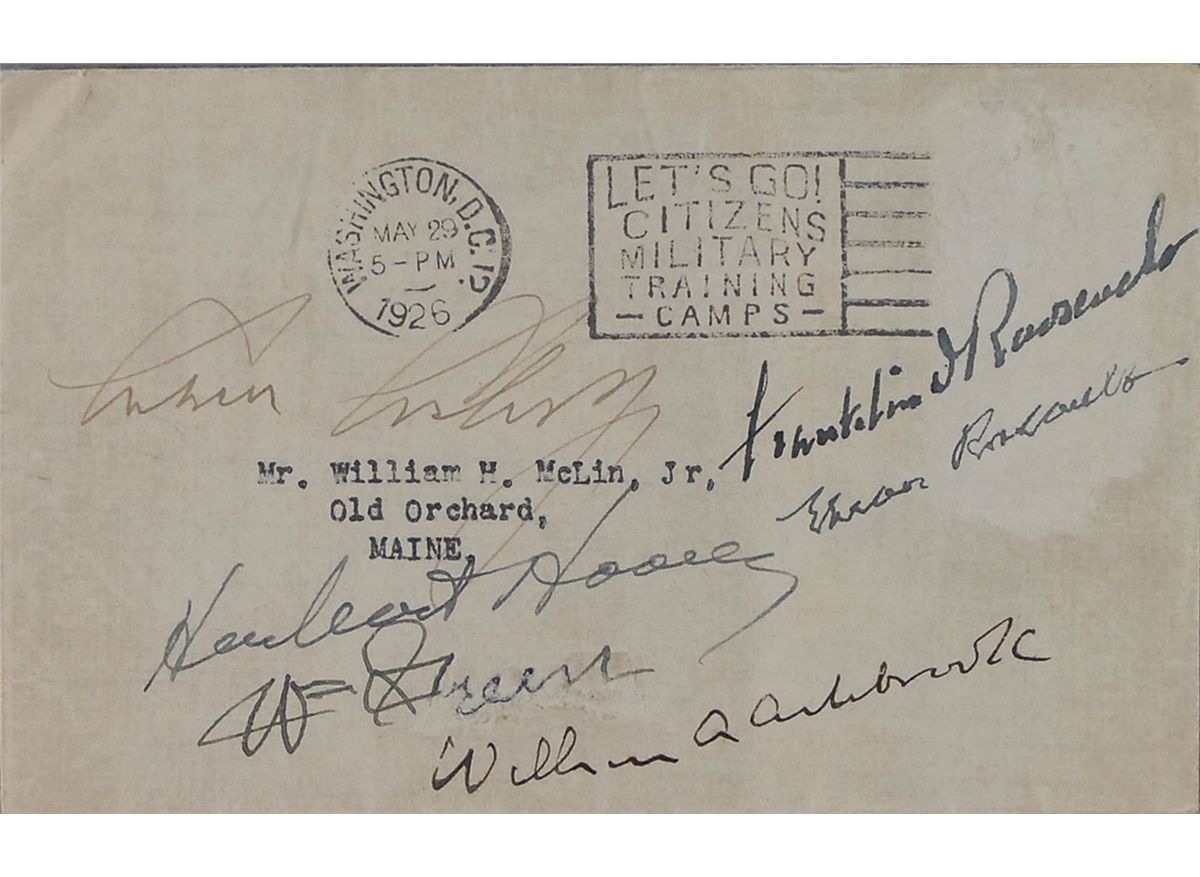 WASHINGTON, D.C. 12
MAY 29
5-PM
1926
LET'S GO!
CITIZENS
MILITARY
TRAINING
- CAMPS -
Franklin D Roosevelt
Eleanor Roosevelt
Mr. William H. McLin, Jr,
Old Orchard,
MAINE,
Herbert Hoover
Wm Green
William A Ashbrook